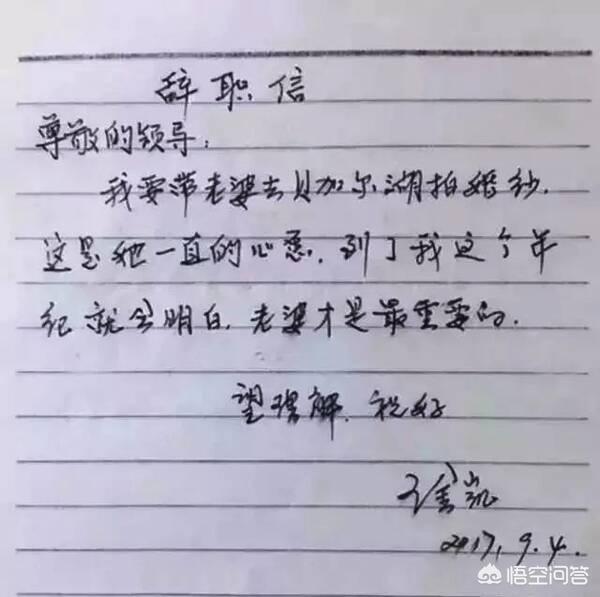 辞职信
尊敬的领导:
我要带老婆去贝加尔湖拍婚纱.
这是她一直的心愿.到了我这个年
纪就会明白.老婆才是最重要的.
望理解.祝好
凯
2017.9.4.
悟空问答